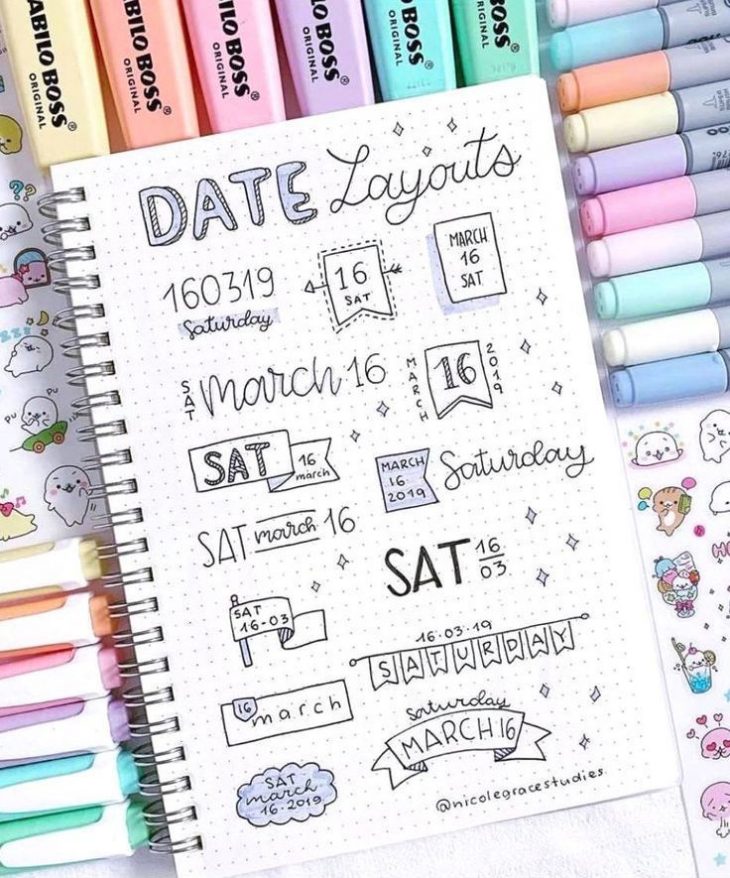 ABILO BOSS®
ORIGINAL
ABILO BOSS®
ORIGINAL
ILO BOSS®
ORIGINAL
ILO BOSS®
ORIGINAL
BOSS®
ORIGINAL
ORIGINAL
DATE Layouts
160319
Saturday
16
SAT
MARCH
16
SAT
SAT march 16
MARCH 16 2019
SAT 16
march
MARCH
16
2019
Saturday
SAT march 16
SAT 16
03
SAT
16-03
16.03.19
SATURDAY
16 march
Saturday
MARCH 16
SAT
march
16.2019
@nicolegracestudies
PU
PU